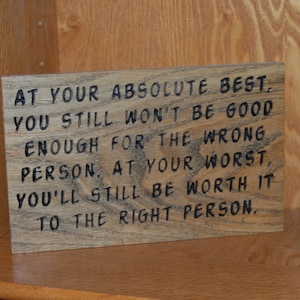 AT YOUR ABSOLUTE BEST,
YOU STILL WON'T BE GOOD
ENOUGH FOR THE WRONG
PERSON. AT YOUR WORST,
YOU'LL STILL BE WORTH IT
TO THE RIGHT PERSON.